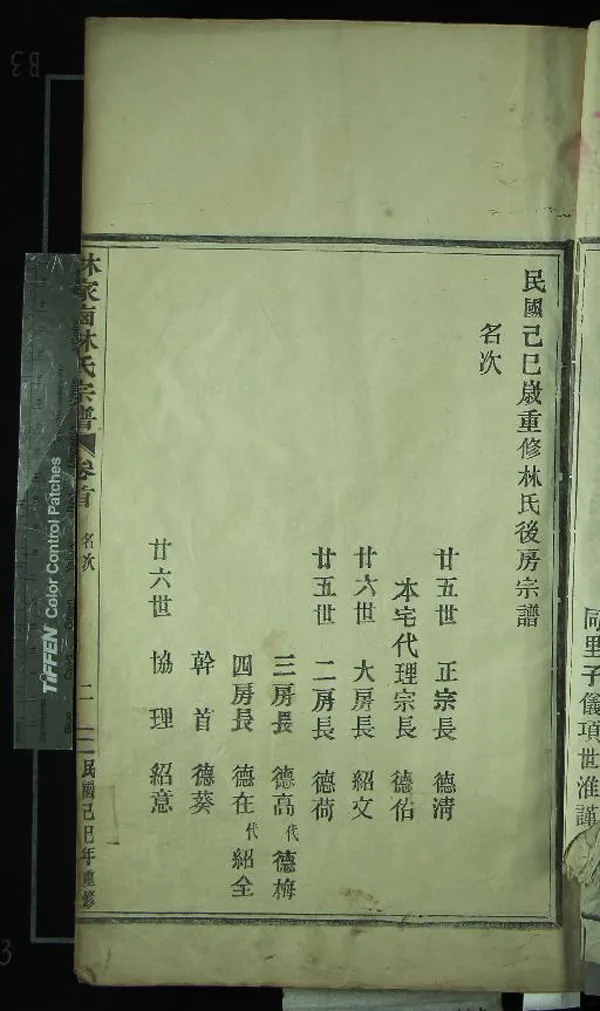 民國己巳歲重修林氏後房宗譜
名次
廿五世 正宗長 德淸
本宅代理宗長 德佑
廿六世 大房長 紹文
廿五世 二房長 德荷
三房長 德高 代 德梅
四房長 德在 代 紹全
幹首 德葵
廿六世 協理 紹意
林家 林氏宗譜 卷首 名次 二 民國己巳年重修
里子儀項世淮謹
TIFFEN Color Control Patches
B3